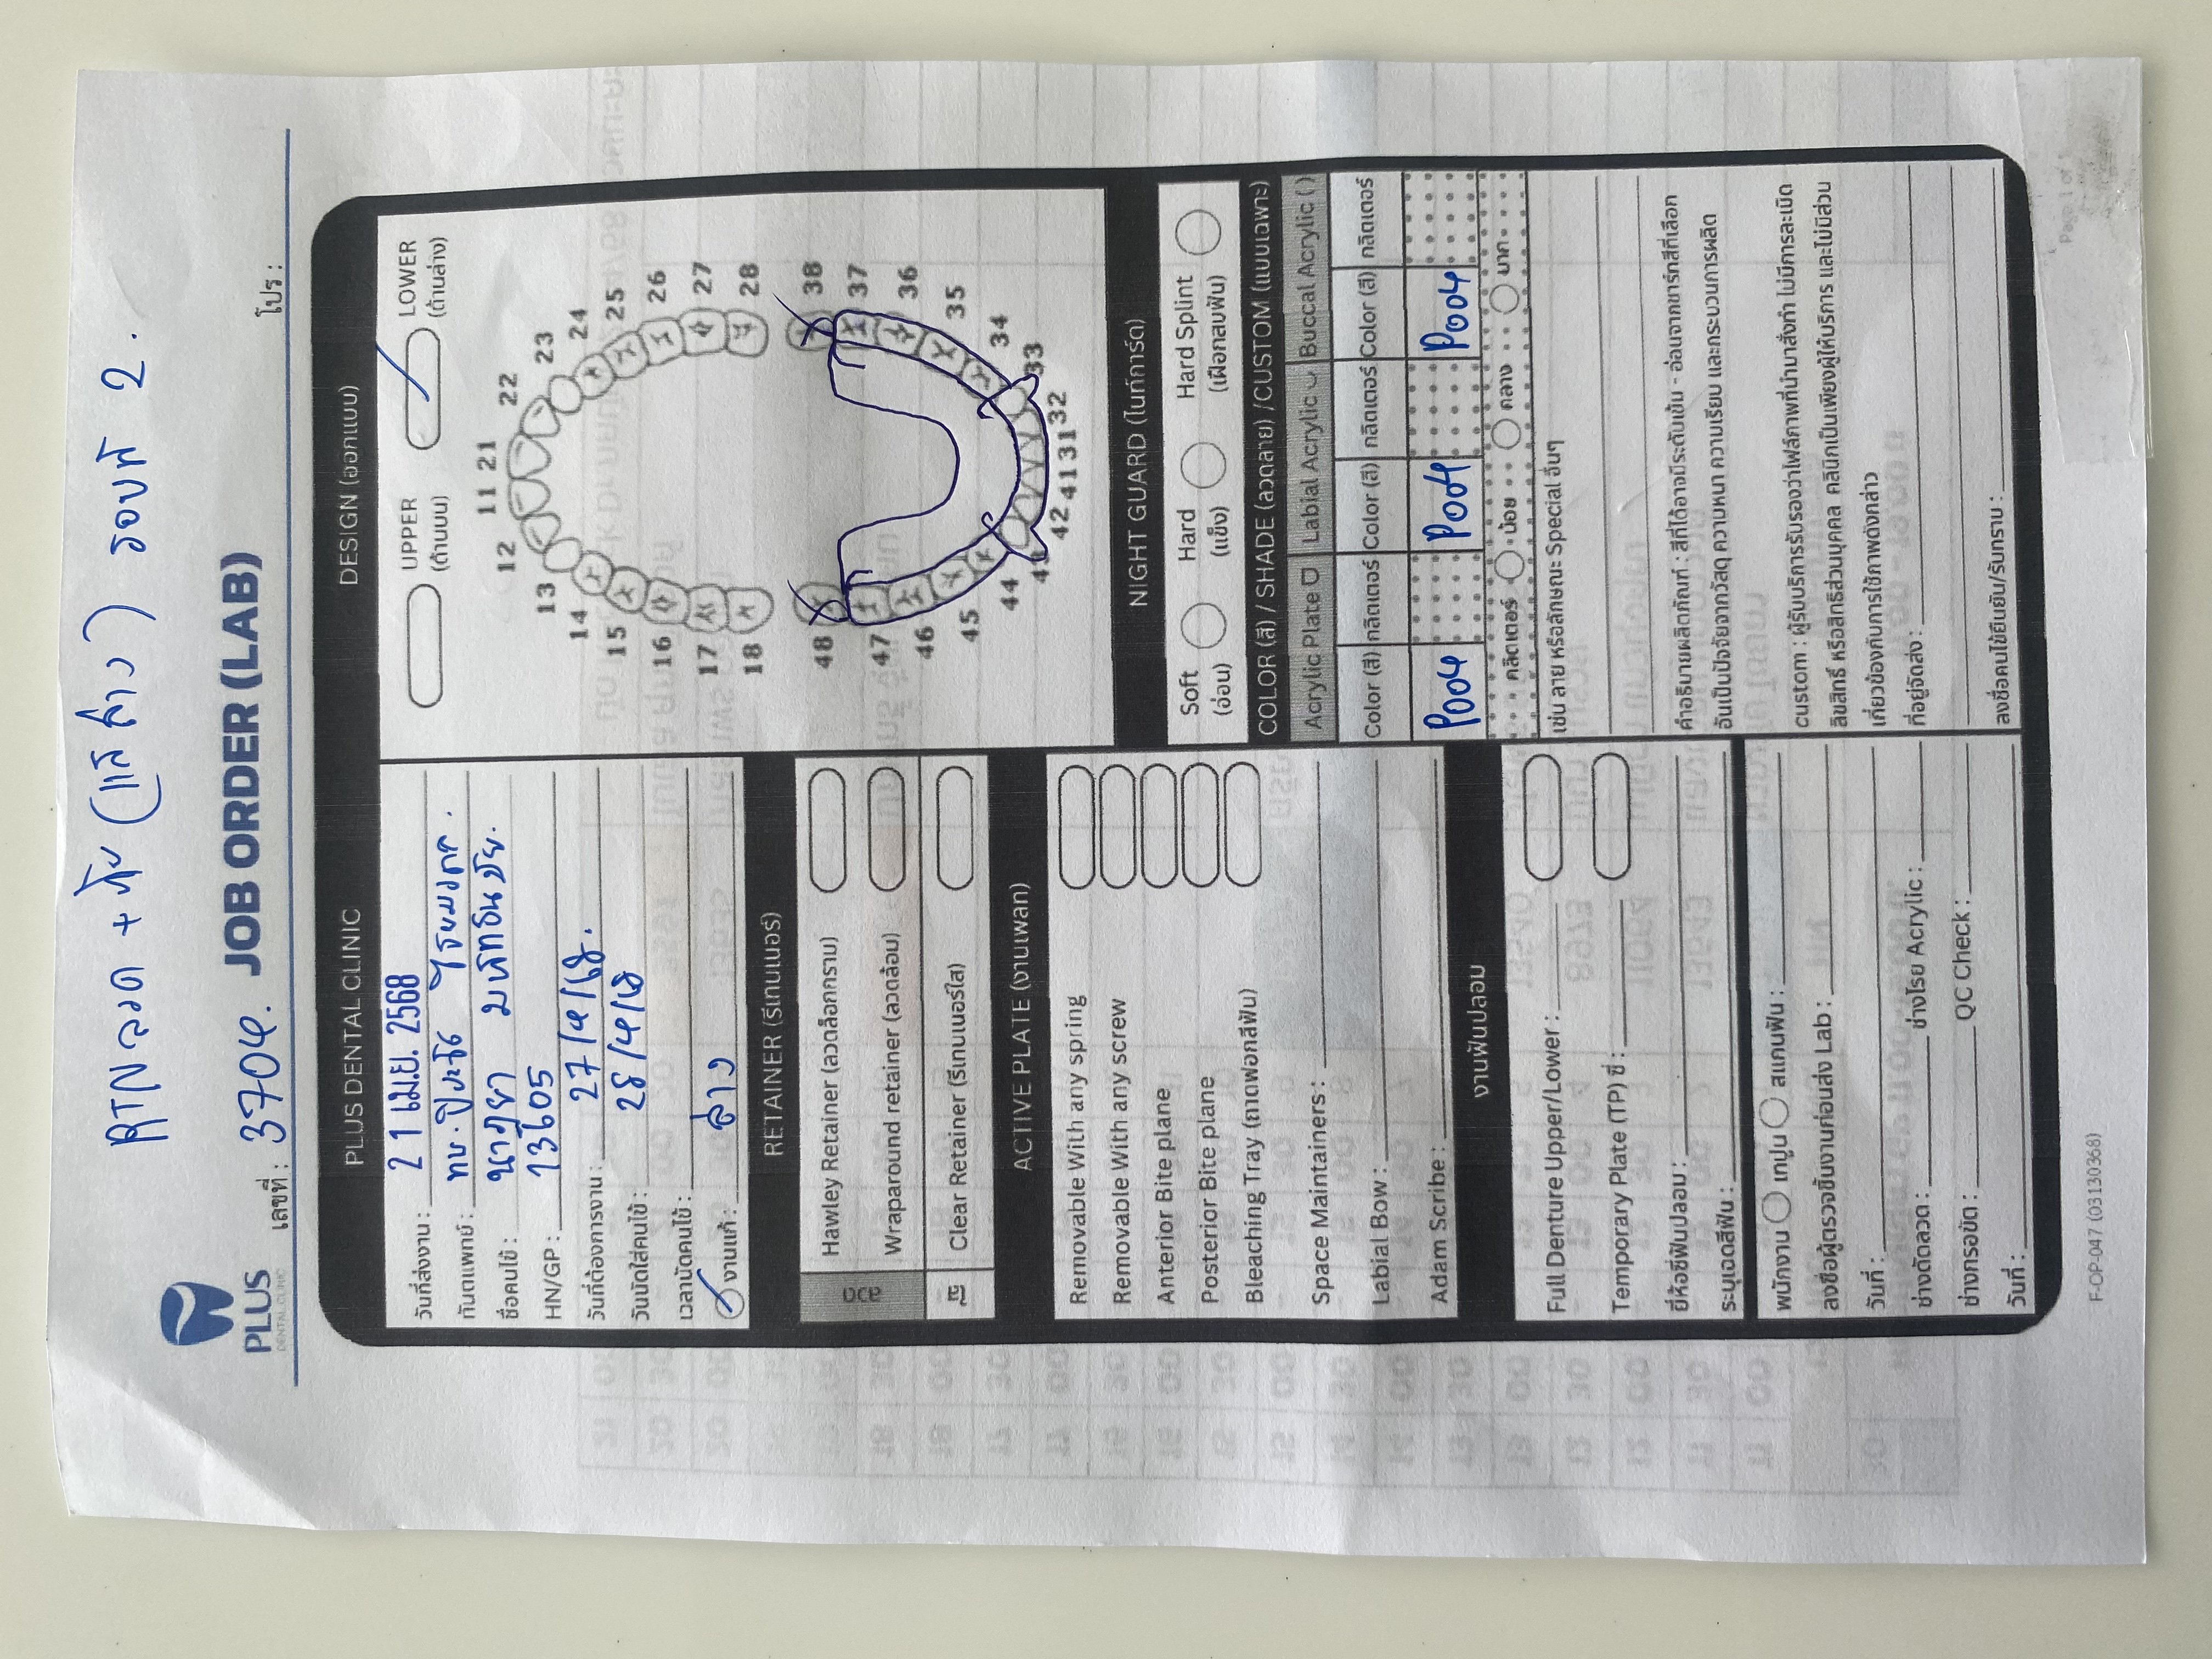 RTN ลวด + (แก้ล่าง) รอบที่ 2.
PLUS
DENTAL CLINIC
เลขที่ : 3704. JOB ORDER (LAB) โปร :
PLUS DENTAL CLINIC
วันที่ส่งงาน : 21 เม.ย. 2568
ทันตแพทย์ : ทพ.
ชื่อคนไข้ :
HN/GP : 13605
วันที่ต้องการงาน : 27/4/68.
วันนัดใส่คนไข้ : 28/4/68
เวลานัดคนไข้ :
งานแก้ : ล่าง
RETAINER (รีเทนเนอร์)
ลวด
Hawley Retainer (ลวดล็อกกราม)
Wraparound retainer (ลวดล้อม)
ใส
Clear Retainer (รีเทนเนอร์ใส)
ACTIVE PLATE (งานเพลท)
Removable With any spring
Removable With any screw
Anterior Bite plane
Posterior Bite plane
Bleaching Tray (ถาดฟอกสีฟัน)
Space Maintainers :
Labial Bow :
Adam Scribe :
งานฟันปลอม
Full Denture Upper/Lower :
Temporary Plate (TP) ซี่ :
ยี่ห้อซี่ฟันปลอม :
ระบุเฉดสีฟัน :
พนักงาน เทปูน สแกนฟัน :
ลงชื่อผู้ตรวจชิ้นงานก่อนส่ง Lab :
วันที่ :
ช่างดัดลวด : ช่างโรย Acrylic :
ช่างกรอขัด : QC Check :
วันที่ :
DESIGN (ออกแบบ)
UPPER
(ด้านบน)
LOWER
(ด้านล่าง)
11 21
12 22
13 23
14 24
15 25
16 26
17 27
18 28
48 38
47 37
46 36
45 35
44 34
43 33
42 41 31 32
NIGHT GUARD (ไนท์การ์ด)
Soft
(อ่อน)
Hard
(แข็ง)
Hard Splint
(เฝือกสบฟัน)
COLOR (สี) / SHADE (ลวดลาย) /CUSTOM (แบบเฉพาะ)
Acrylic Plate Labial Acrylic Buccal Acrylic ( )
Color (สี) กลิตเตอร์ Color (สี) กลิตเตอร์ Color (สี) กลิตเตอร์
P004 P004 P004
กลิตเตอร์ น้อย กลาง มาก
เช่น ลาย หรือลักษณะ Special อื่นๆ
คำอธิบายผลิตภัณฑ์ : สีที่ได้อาจมีระดับเข้ม - อ่อนจากชาร์ทสีที่เลือก
อันเป็นปัจจัยจากวัสดุ ความหนา ความเรียบ และกระบวนการผลิต
custom : ผู้รับบริการรับรองว่าไฟล์ภาพที่นำมาสั่งทำ ไม่มีการละเมิด
ลิขสิทธิ์ หรือสิทธิส่วนบุคคล คลินิกเป็นเพียงผู้ให้บริการ และไม่มีส่วน
เกี่ยวข้องกับการใช้ภาพดังกล่าว
ที่อยู่จัดส่ง :
ลงชื่อคนไข้ยืนยัน/รับทราบ :
F-OP-047 (03130368)